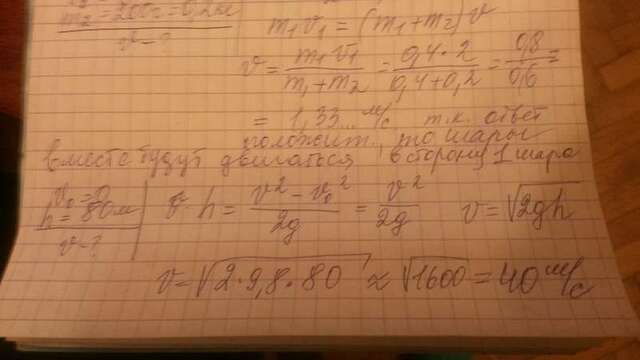 m₂ = 200г = 0,2кг
v - ?
m₁v₁ = (m₁ + m₂)v
v = m₁v₁ / (m₁ + m₂) = 0,4·2 / (0,4+0,2) = 0,8 / 0,6 =
= 1,33.. м/с т.к. ответ
положит., то шары
вместе будут двигаться в сторону 1 шара
h = 80м
v - ?
h = (v² - v₀²) / 2g = v² / 2g
v = √2gh
v = √2·9,8·80 ≈ √1600 = 40 м/с